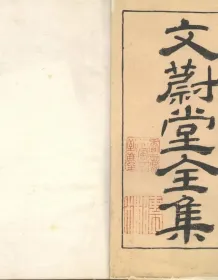 文蔚堂全集